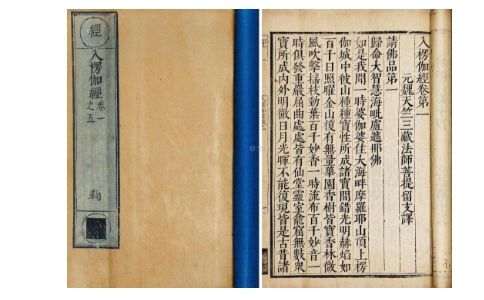 經
入楞伽經
卷一
之五
入楞伽經卷第一
元魏天竺三藏法師菩提留支譯
請佛品第一
歸命大智慧海毗盧遮那佛
如是我聞一時婆伽婆住大海畔摩羅耶山頂上楞
伽城中彼山種種寶性所成諸寶間錯光明赫焰如
百千日照曜金山復有無量華園香樹皆寶香林微
風吹擊搖枝動葉百千妙香一時流布百千妙音一
時俱發重巖屈曲處處皆有仙堂靈室龕窟無數眾
寶所成內外明徹日月光暉不能復現皆是古昔諸